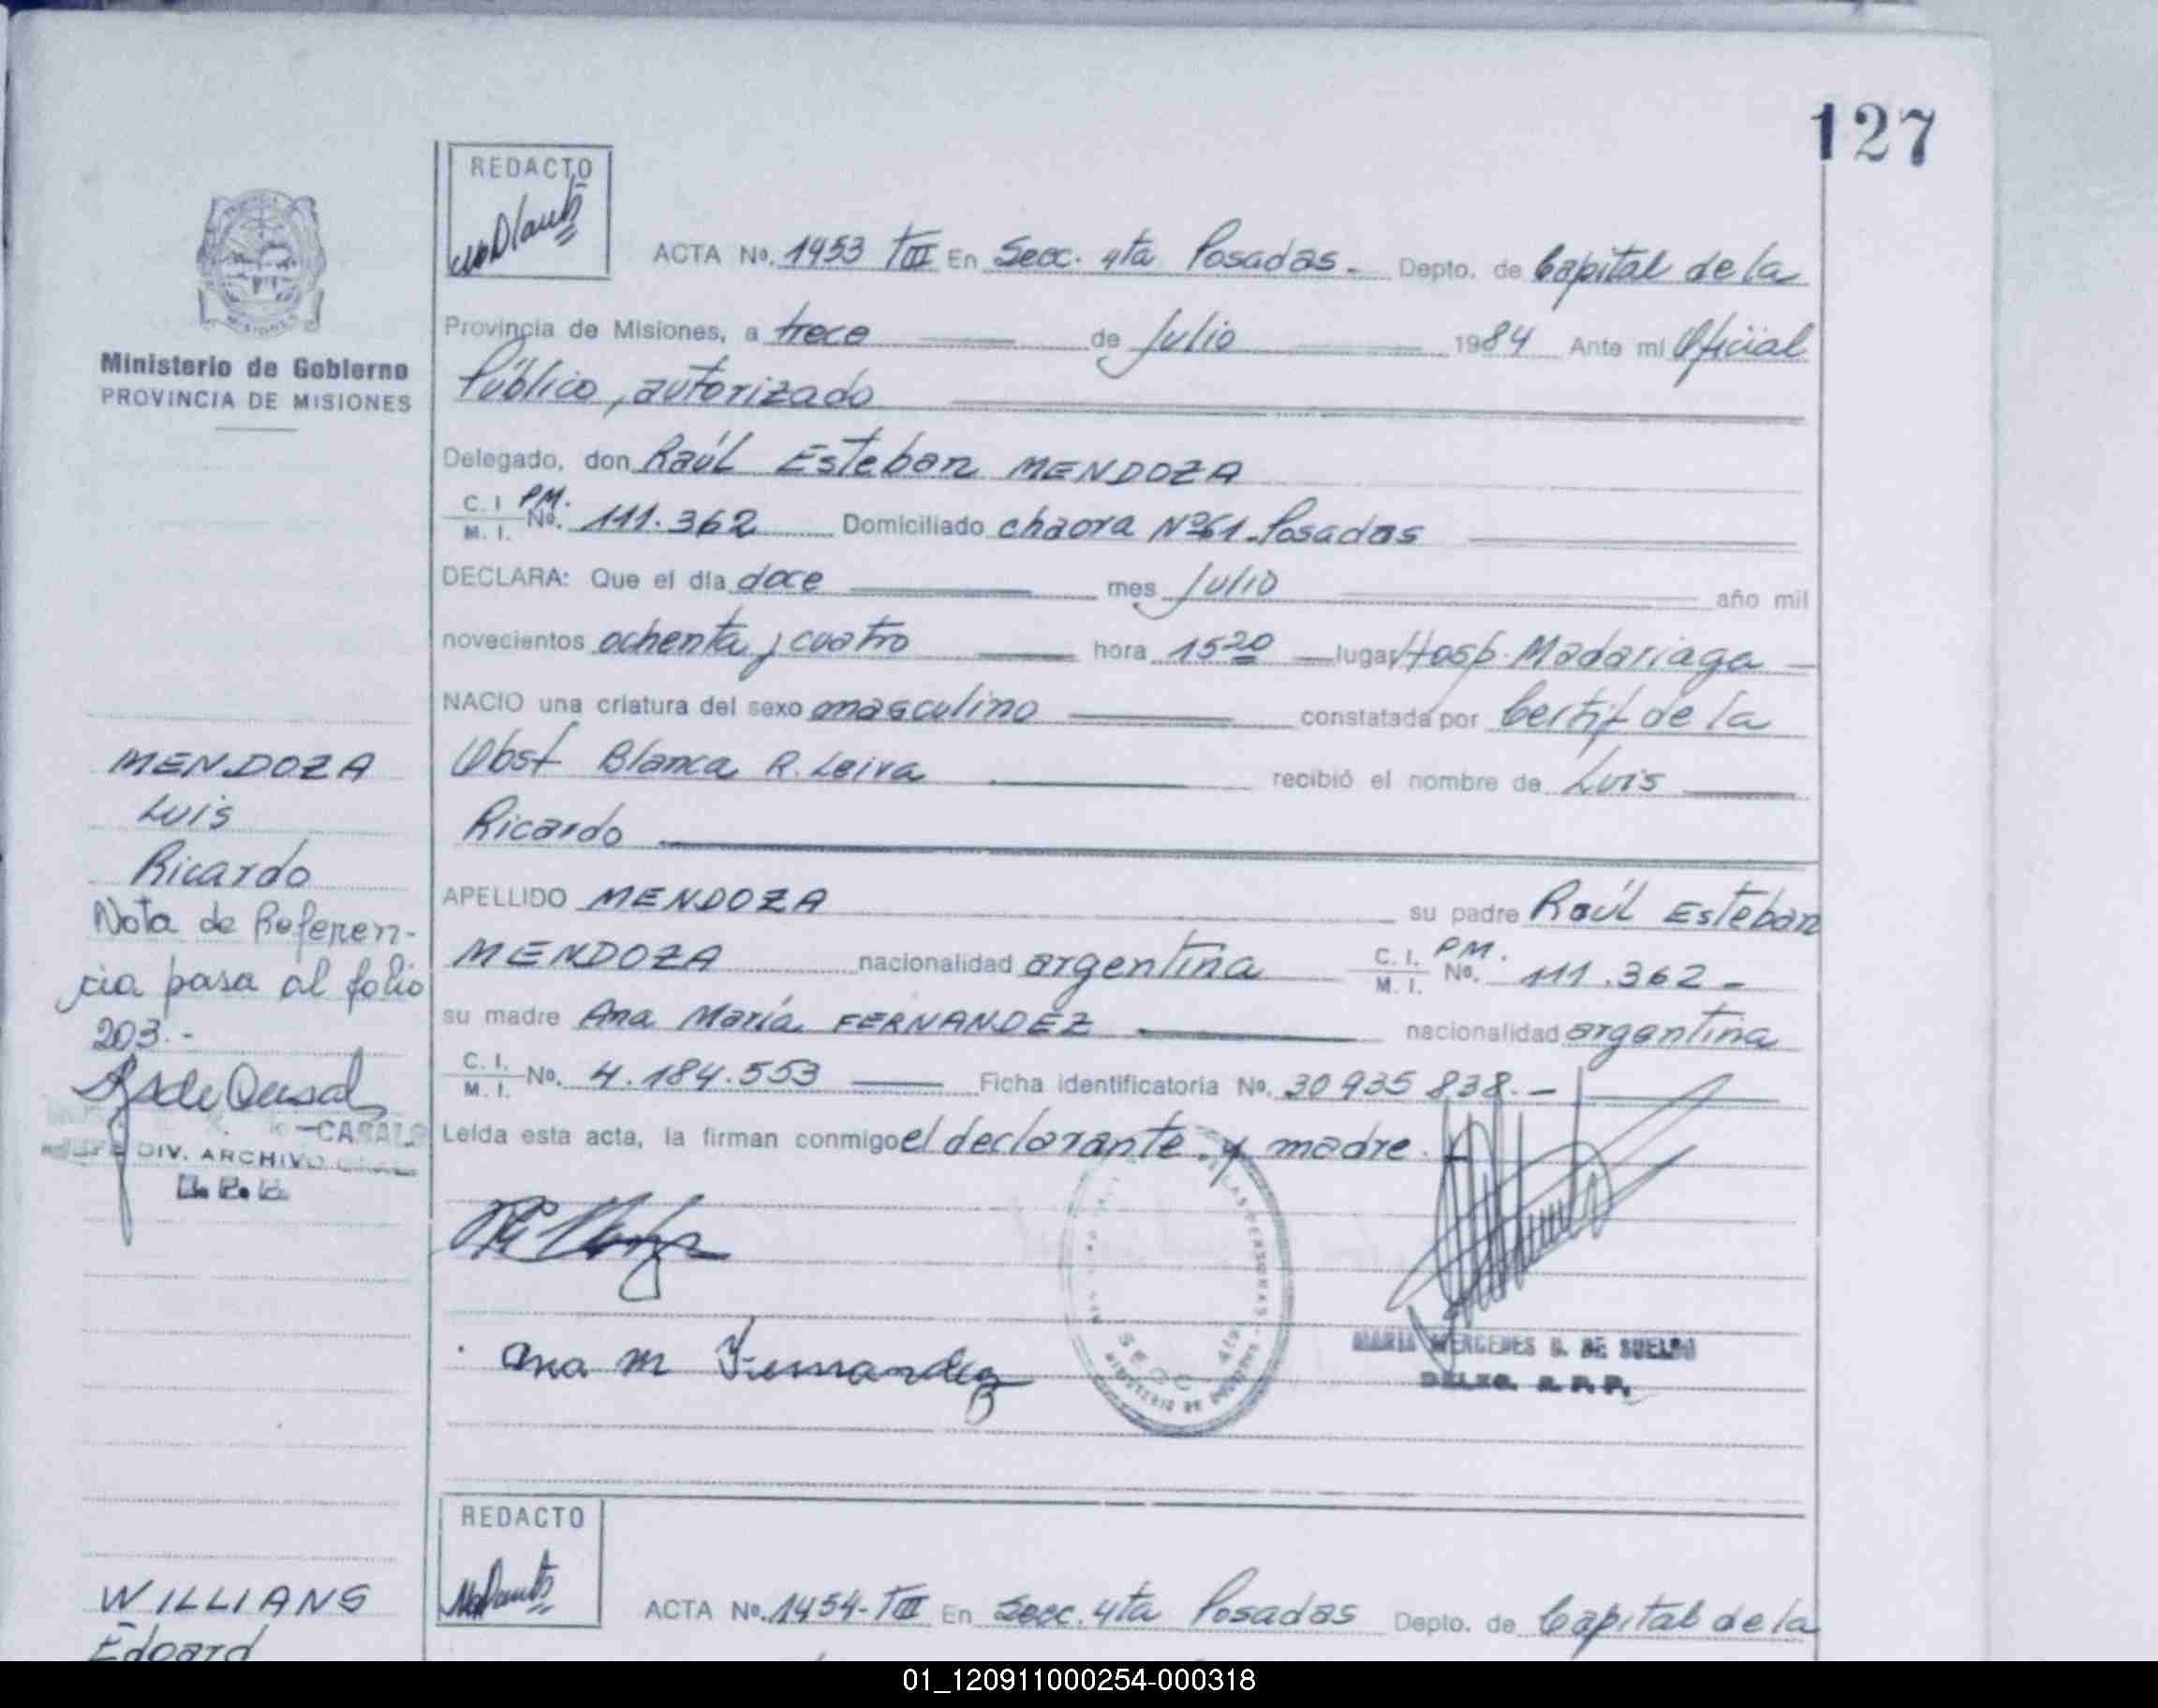 127
REDACTO
ACTA No. 1453 TIII En Secc. 4ta Posadas.- Depto. de Capital de la
Provincia de Misiones, a trece de Julio 1984 Ante mi Oficial
Público, autorizado
Delegado, don Raúl Esteban MENDOZA
C. I. M. I. PM. No. 111.362 Domiciliado chacra Nº61. Posadas
DECLARA: Que el día doce mes Julio año mil
novecientos ochenta y cuatro hora 15 20 lugar Hosp. Madariaga
NACIO una criatura del sexo masculino constatada por Certif de la
Obst Blanca R. Leiva recibió el nombre de Luis
Ricardo
APELLIDO MENDOZA su padre Raúl Esteban
MENDOZA nacionalidad argentina C. I. M. I. PM. No. 111.362-
su madre Ana María FERNANDEZ nacionalidad argentina
C. I. M. I. No. 4.184.553 Ficha identificatoria No. 30935838.-
Leída esta acta, la firman conmigo el declarante y madre.
Ana M Fernandez
MARIA MERCEDES DE SUELDO
SECC 4ta
Ministerio de Gobierno
PROVINCIA DE MISIONES
MENDOZA
Luis
Ricardo
Nota de Referen-
cia pasa al folio
203.-
DIV. ARCHIVO
REDACTO
ACTA No. 1454-TIII En Secc. 4ta Posadas Depto. de Capital de la
WILLIANS
Edoard
01_120911000254-000318